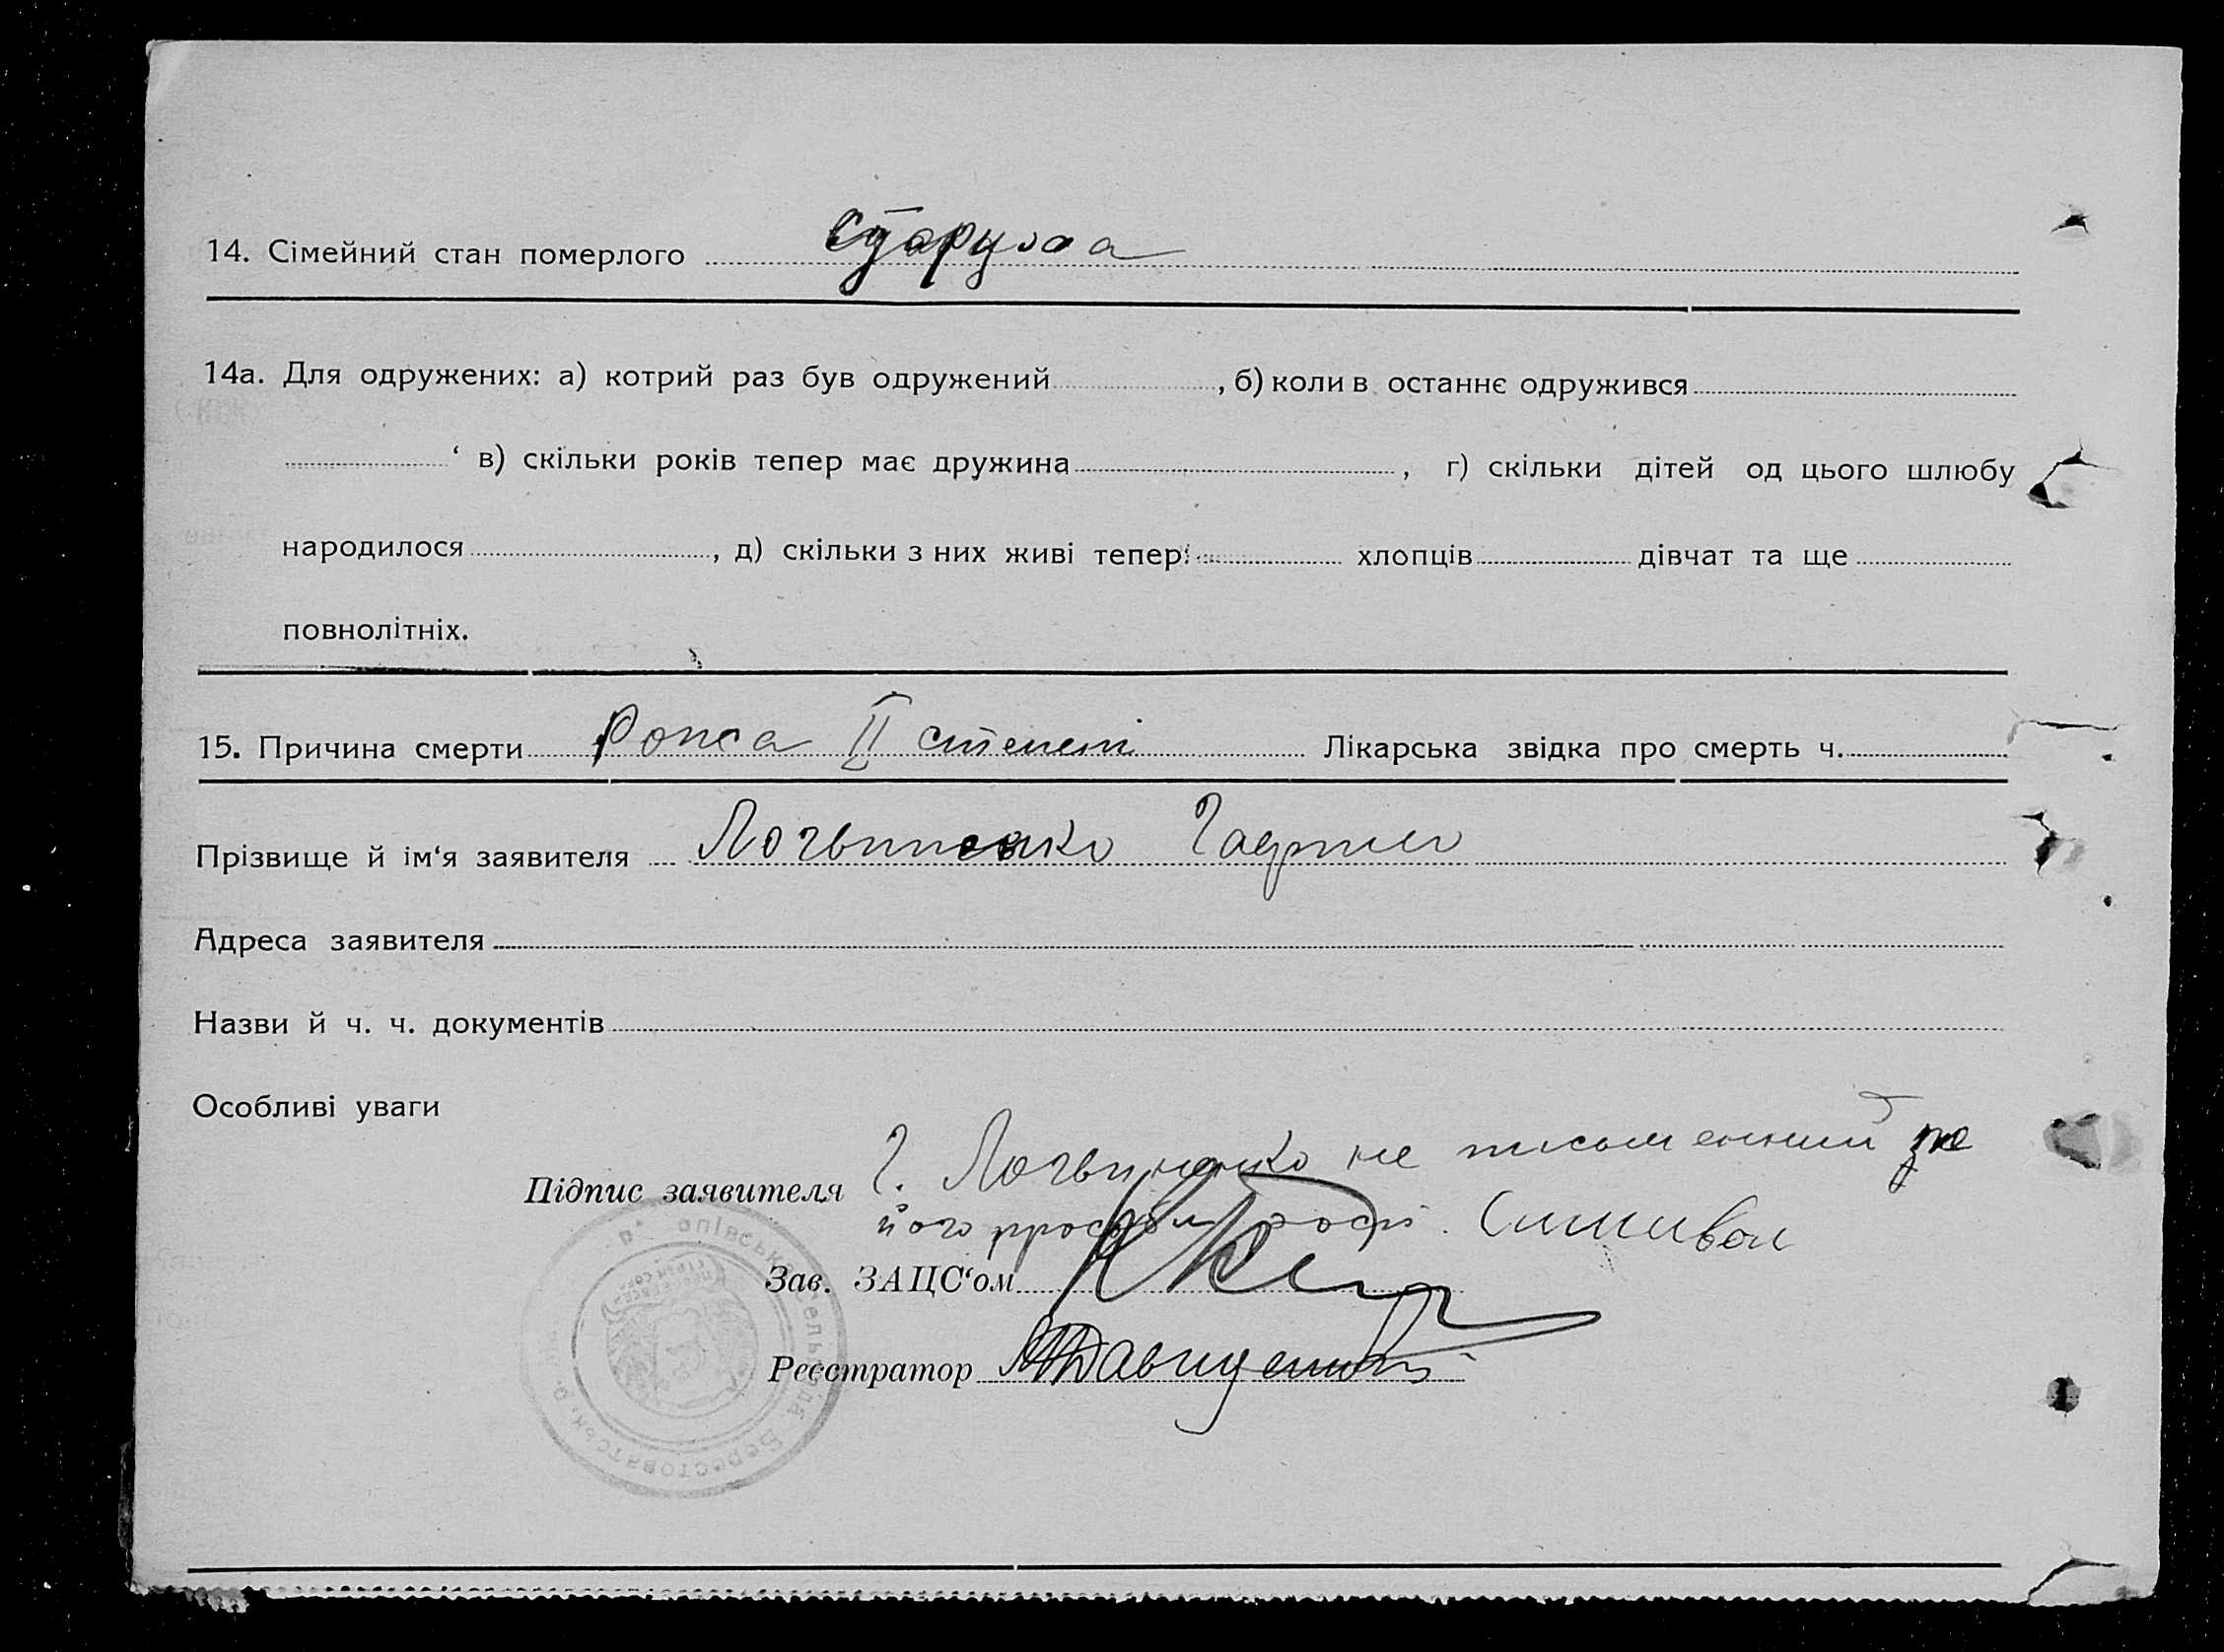 14. Сімейний стан померлого старуха
14а. Для одружених: а) котрий раз був одружений , б) коли в останнє одружився
‘ в) скільки років тепер має дружина , г) скільки дітей од цього шлюбу
народилося , д) скільки з них живі тепер: хлопців дівчат та ще
повнолітніх.
15. Причина смерти II степені Лікарська звідка про смерть ч.
Прізвище й ім‘я заявителя Логвиненко Гаврило
Адреса заявителя
Назви й ч. ч. документів
Особливі уваги
Підпис заявителя Г. Логвиненко не письменний за
його
Зав. ЗАЦС‘ом
Реєстратор